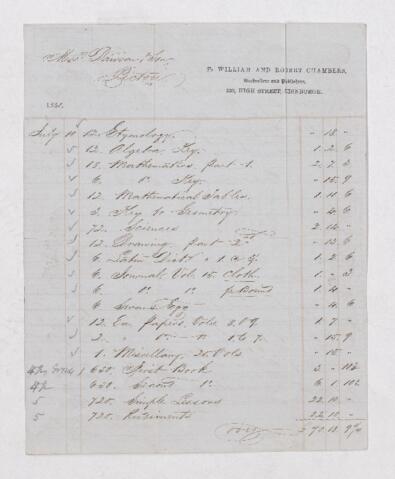 Messrs Dawson & Son
Pictou
To WILLIAM AND ROBERT CHAMBERS,
Booksellers and Publishers,
339, HIGH STREET, EDINBURGH.
1851.
July 10 12 Etymology " 18 "
12 Algebra Key 1 2 6
18 Mathematics part 1 2 7 3
6 Do Key " 15 9
12 Mathematical Tables 1 11 6
3 Key to Geometry " 4 6
72 Sciences 2 14 "
12 Drawing part 2 " 13 6
6 Latin Dict 1 2 6
6 Journal Vol 15 Cloth 1 " 3
6 Do Do ½ Bound 1 4 "
6 Swan's Egg " 4 6
12 Ed. Papers Vols 1 7 "
2 Do " 15 9
1 Miscellany 20 Vols " 15 "
630 First Book 3 " 11½
630 Second Do 6 1 10½
5 720 Simple Lessons 22 10 "
5 720 Rudiments 22 10 "
over